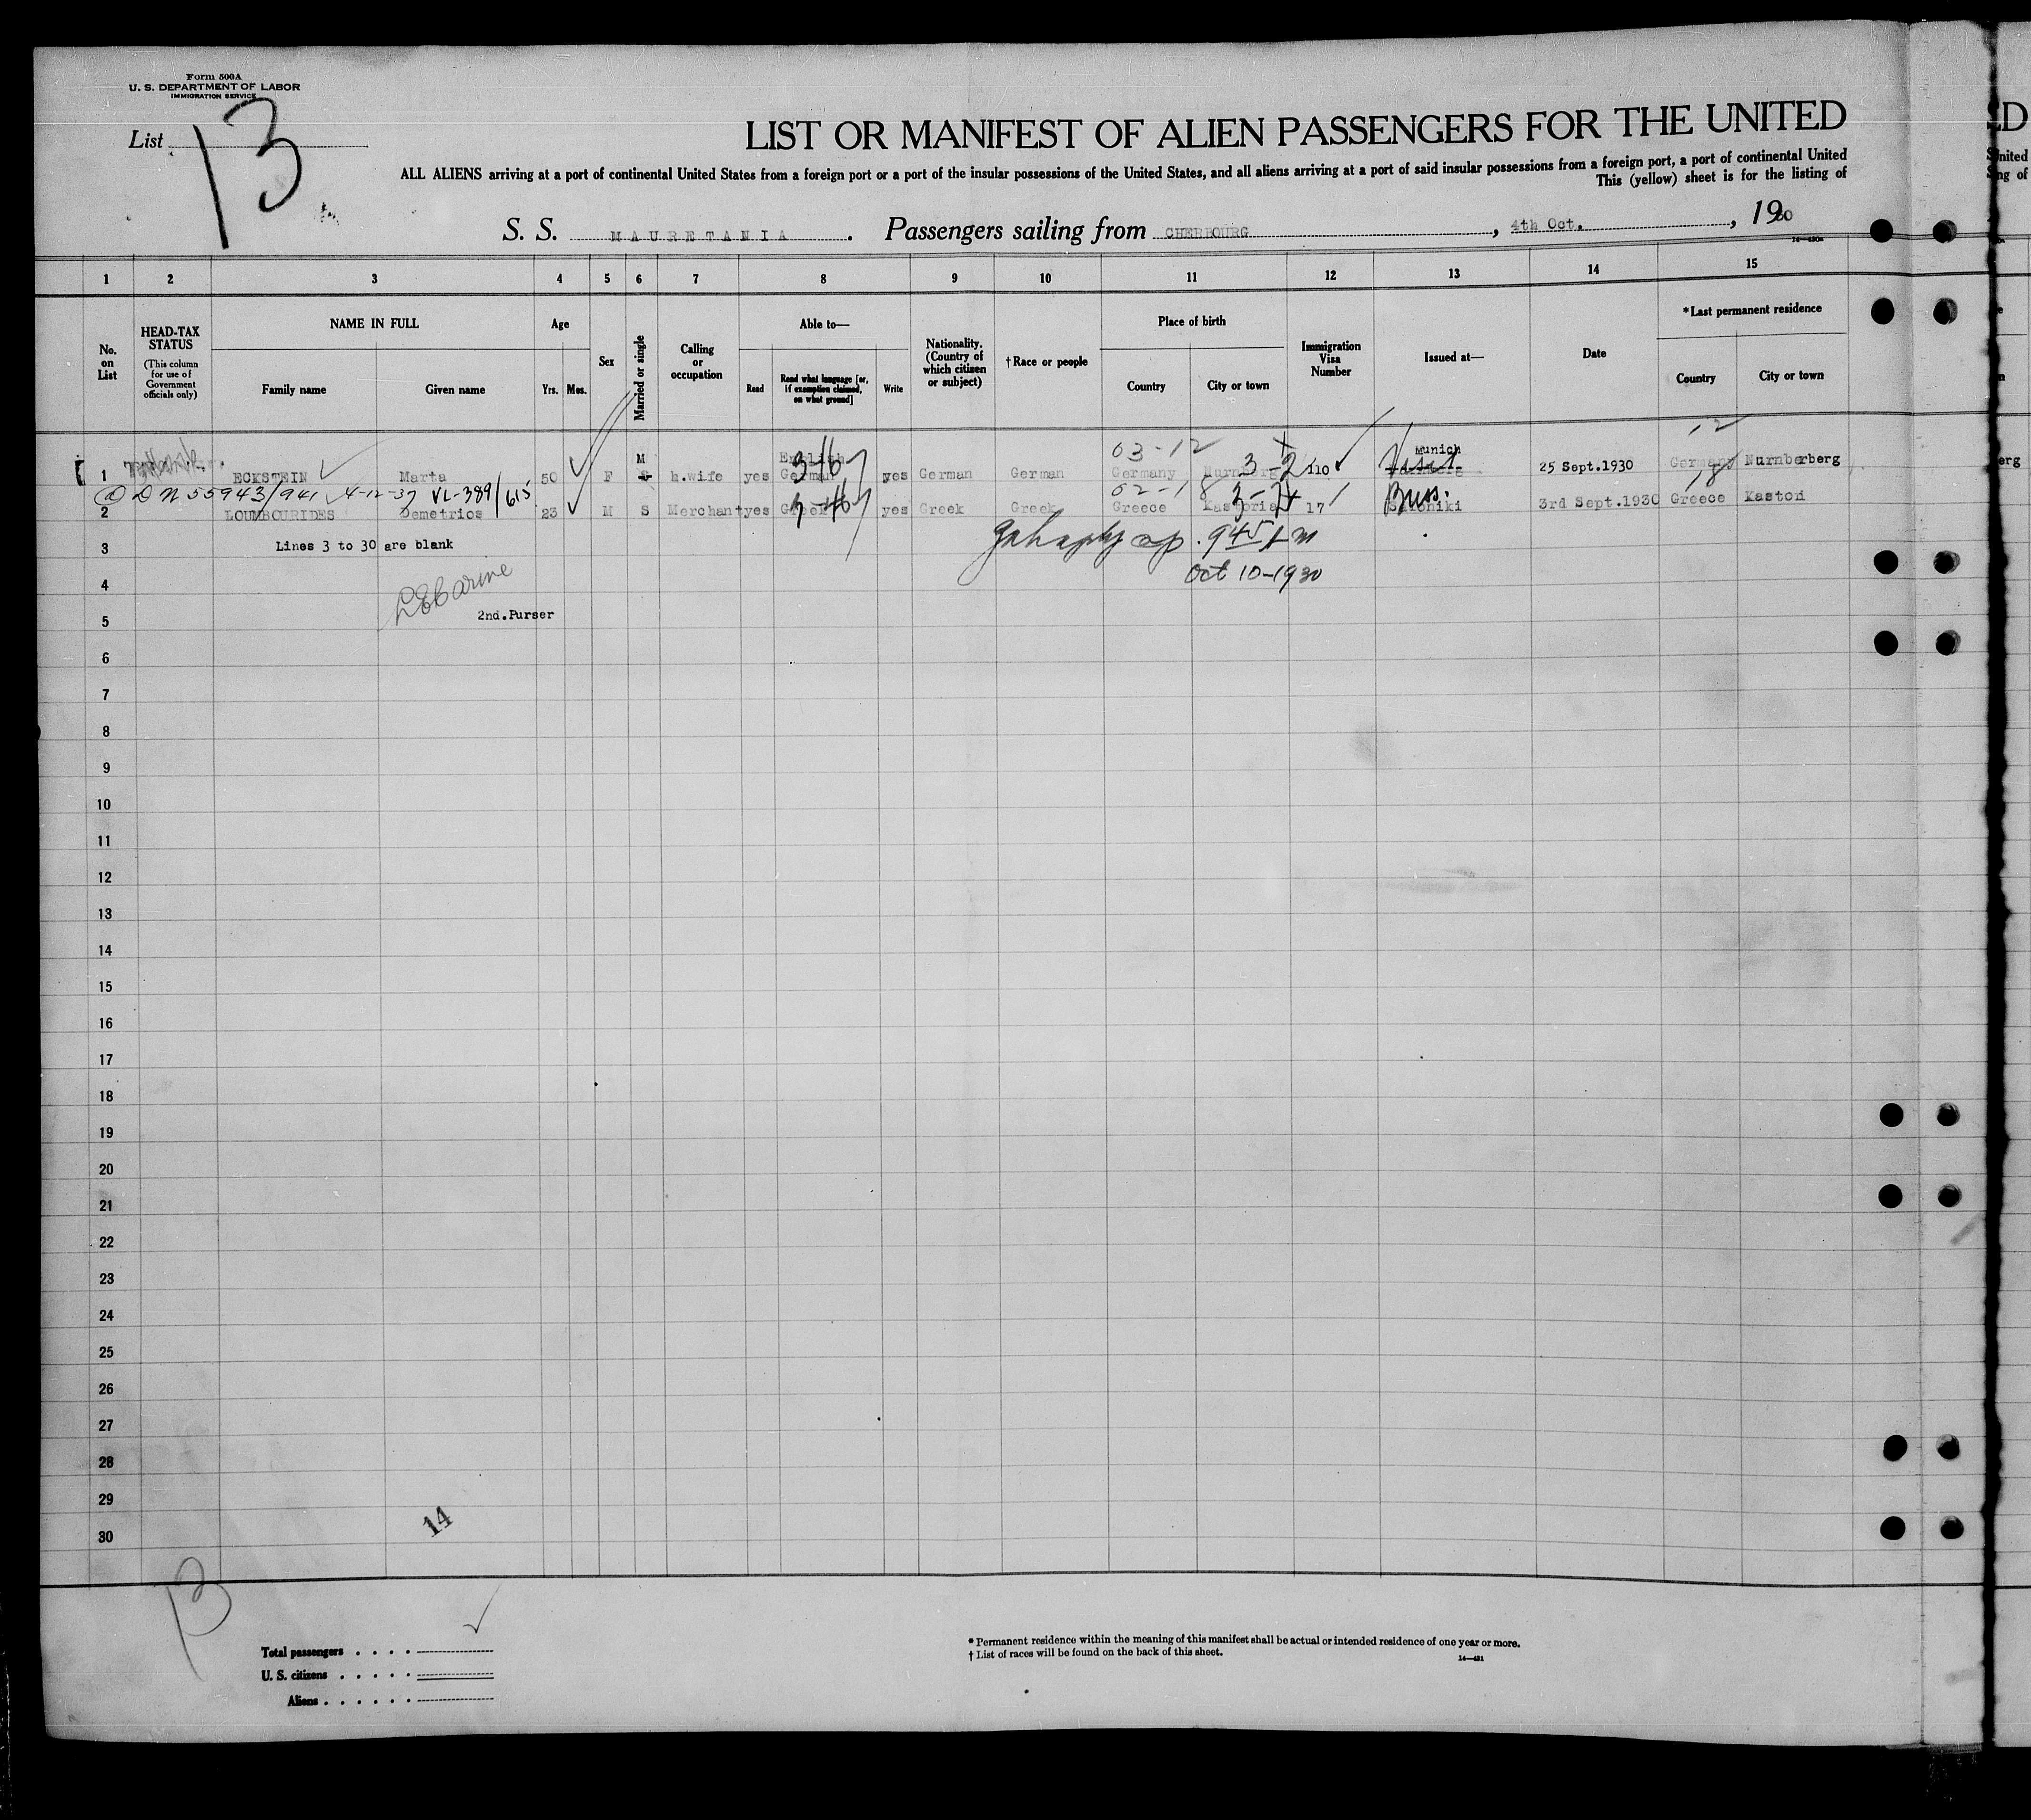 Form 500A
U. S. DEPARTMENT OF LABOR
IMMIGRATION SERVICE
List 13
LIST OR MANIFEST OF ALIEN PASSENGERS FOR THE UNITED
ALL ALIENS arriving at a port of continental United States from a foreign port or a port of the insular possessions of the United States, and all aliens arriving at a port of said insular possessions from a foreign port, a port of continental United
This (yellow) sheet is for the listing of
S. S. MAURETANIA. Passengers sailing from CHERBOURG, 4th Oct., 1930
1 2 3 4 5 6 7 8 9 10 11 12 13 14 15
No. on List
HEAD-TAX STATUS
(This column for use of Government officials only)
NAME IN FULL
Family name Given name
Age
Yrs. Mos.
Sex
Married or single
Calling or occupation
Able to—
Read
Read what language [or, if exemption claimed, on what ground]
Write
Nationality. (Country of which citizen or subject)
†Race or people
Place of birth
Country City or town
Immigration Visa Number
Issued at—
Date
*Last permanent residence
Country City or town
03-12 3-2 Visit 12
1 ECKSTEIN Marta 50 F M S h.wife yes English German yes German German Germany Nurnberg 110 Munich 25 Sept.1930 Germany Nurnberberg
55943/941 4-12-37 VL-389/615 02-18 Buss. 18
2 LOUMBOURIDES Demetrios 23 M S Merchant yes Greek yes Greek Greek Greece Kastoria 17 Saloniki 3rd Sept.1930 Greece Kastori
3 Lines 3 to 30 are blank
945
Oct 10-1930
4
2nd.Purser
5
6
7
8
9
10
11
12
13
14
15
16
17
18
19
20
21
22
23
24
25
26
27
28
29
30
14
13
Total passengers
U. S. citizens
Aliens
* Permanent residence within the meaning of this manifest shall be actual or intended residence of one year or more.
† List of races will be found on the back of this sheet.
14—431